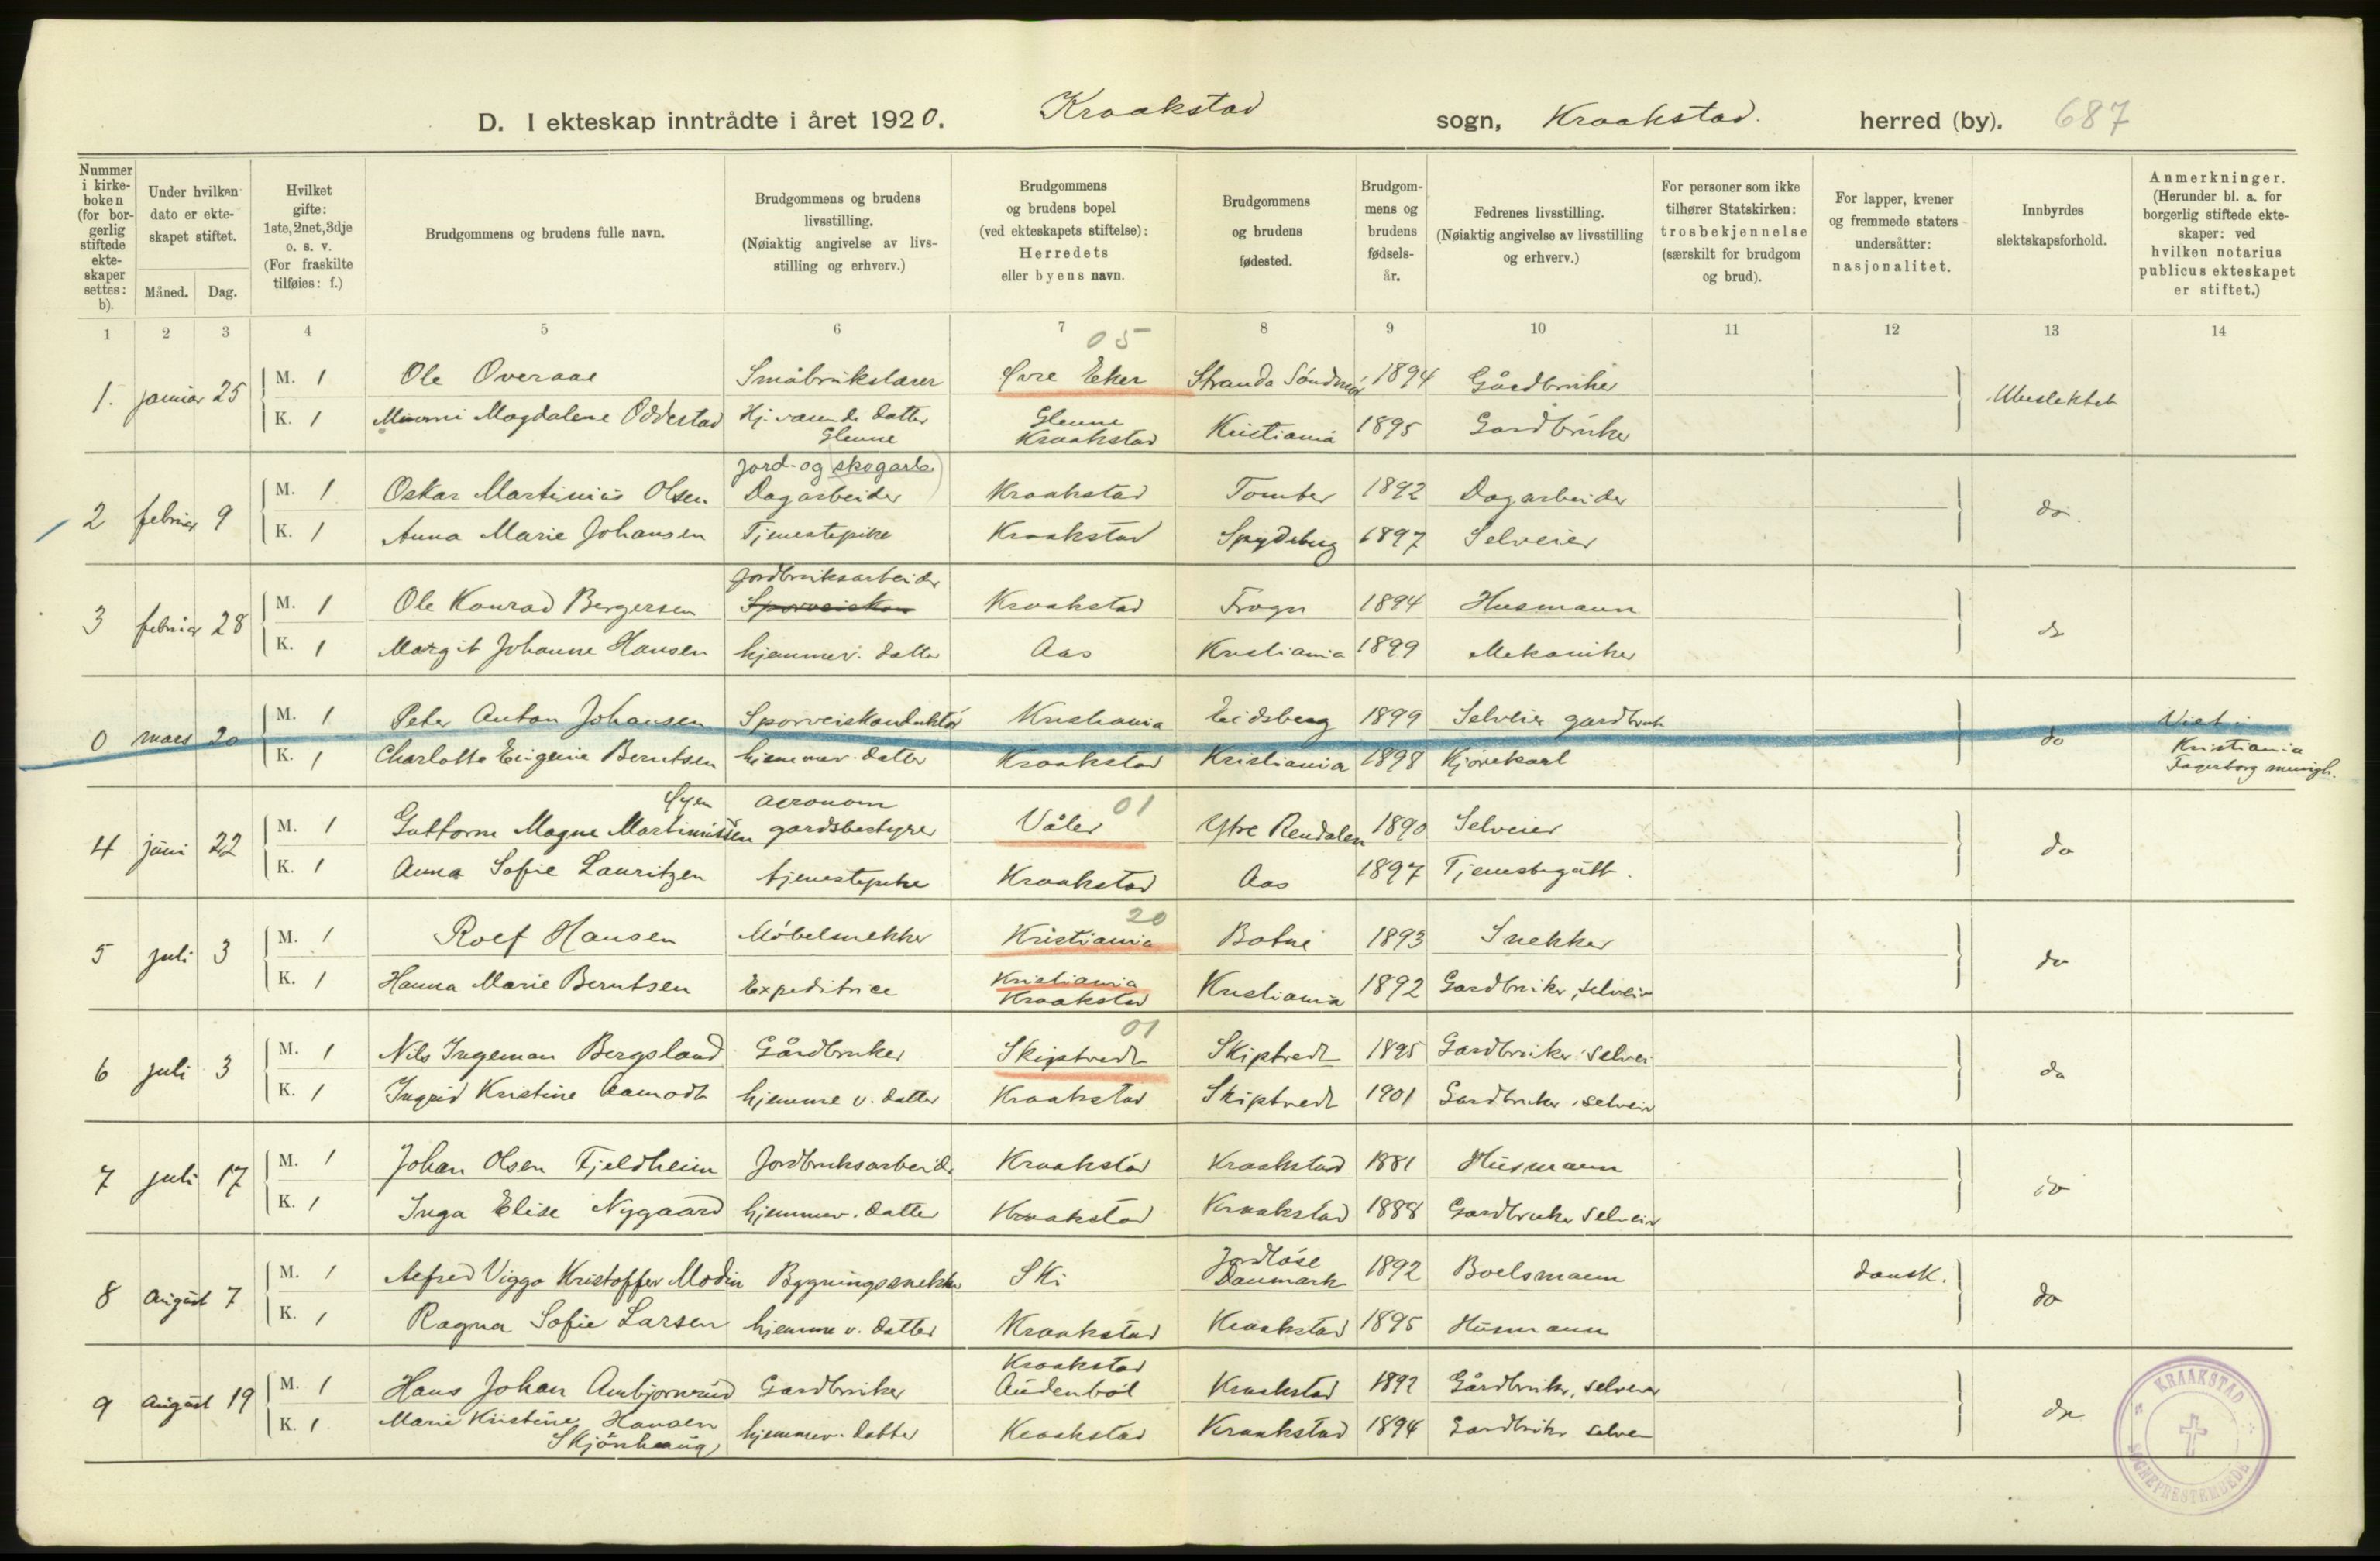 D. I ekteskap inntrådte i året 1920. Kraakstad sogn, Kraakstad. herred (by). 687
Nummer i kirke-boken (for bor-gerlig stiftede ekte-skaper settes: b).
Under hvilken dato er ekte-skapet stiftet.
Måned. Dag.
Hvilket gifte: 1ste, 2net, 3dje o. s. v. (For fraskilte tilføies: f.)
Brudgommens og brudens fulle navn.
Brudgommens og brudens livsstilling. (Nøiaktig angivelse av livs-stilling og erhverv.)
Brudgommens og brudens bopel (ved ekteskapets stiftelse): Herredets eller byens navn.
Brudgommens og brudens fødested.
Brudgom-mens og brudens fødsels-år.
Fedrenes livsstilling. (Nøiaktig angivelse av livsstilling og erhverv.)
For personer som ikke tilhører Statskirken: trosbekjennelse (særskilt for brudgom og brud).
For lapper, kvener og fremmede staters undersåtter: nasjonalitet.
Innbyrdes slektskapsforhold.
Anmerkninger. (Herunder bl. a. for borgerlig stiftede ekte-skaper: ved hvilken notarius publicus ekteskapet er stiftet.)
1 2 3 4 5 6 7 8 9 10 11 12 13 14
05
1. januar 25 M. 1 Ole Overaae Småbrukslærer Øvre Eker Stranda Søndmør 1894 Gårdbruker Ubeslektet
K. 1 Magdalene Oddestad Hj. værende datter Glenne Glenne Kraakstad Kristiania 1895 Gardbruker
jord- og skogarb.
2 februar 9 M. 1 Oskar Martinius Olsen Dagarbeider Kraakstad Tomter 1892 Dagarbeider do.
K. 1 Anna Marie Johansen Tjenestepike Kraakstad Spydeberg 1897 Selveier
Jordbruksarbeider
3 februar 28 M. 1 Ole Konrad Bergersen Sporveiskon Kraakstad Frogn 1894 Husmann do
K. 1 Margit Johanne Hansen hjemmev. datter Aas Kristiania 1899 Mekaniker
0 mars 20 M. 1 Peter Anton Johansen Sporveiskonduktør Kristiania Eidsberg 1899 Selveier gardbruk do Viet i Kristiania Fagerborg menigh.
K. 1 Charlotte Eugenie Berntsen hjemmev. datter Kraakstad Kristiania 1898 Kjørekarl
Øyen agronom 01
4 juni 22 M. 1 Guttorm Magne Martinissen gardsbestyrer Våler Ytre Rendalen 1890 Selveier do
K. 1 Anna Sofie Lauritzen tjenestepike Kraakstad Aas 1897 Tjenestegutt.
20
5 juli 3 M. 1 Rolf Hansen Møbelsnekker Kristiania Botne 1893 Snekker do
K. 1 Hanna Marie Berntsen Expeditrice Kristiania Kraakstad Kristiania 1892 Gardbruker, selveier
01
6 juli 3 M. 1 Nils Ingeman Bergsland Gårdbruker Skiptvedt Skiptvedt 1895 Gardbruker, selvei do
K. 1 Ingrid Kristine Aamodt hjemme v. datter Kraakstad Skiptvedt 1901 Gardbruker, selveier
7 juli 17 M. 1 Johan Olsen Fjeldheim Jordbruksarbeider Kraakstad Kraakstad 1881 Husmann do
K. 1 Inga Elise Nygaard hjemmev. datter Kraakstad Kraakstad 1888 Gardbruker selveier
8 august 7 M. 1 Alfred Viggo Kristoffer Modin Bygningssnekker Ski Jordløse Danmark 1892 Boelsmann dansk. do
K. 1 Ragna Sofie Larsen hjemme v. datter Kraakstad Kraakstad 1895 Husmann
9 august 19 M. 1 Hans Johan Ambjørnrud Gardbruker Kraakstad Audenbøl Kraakstad 1892 Gårdbruker, selveier do
K. 1 Marie Kristine Hansen Skjønhaug hjemmev. datter Kraakstad Kraakstad 1894 Gardbruker selvei
KRAAKSTAD SOGNEPRESTEMBEDE